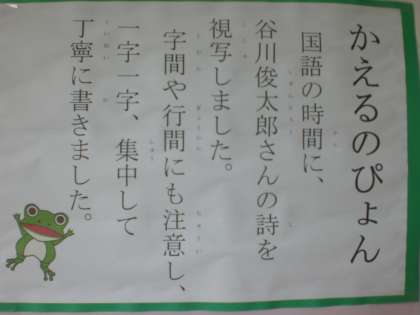 かえるのぴょん
国語の時間に、
谷川俊太郎さんの詩を
視写しました。
字間や行間にも注意し、
一字一字、集中して
丁寧に書きました。